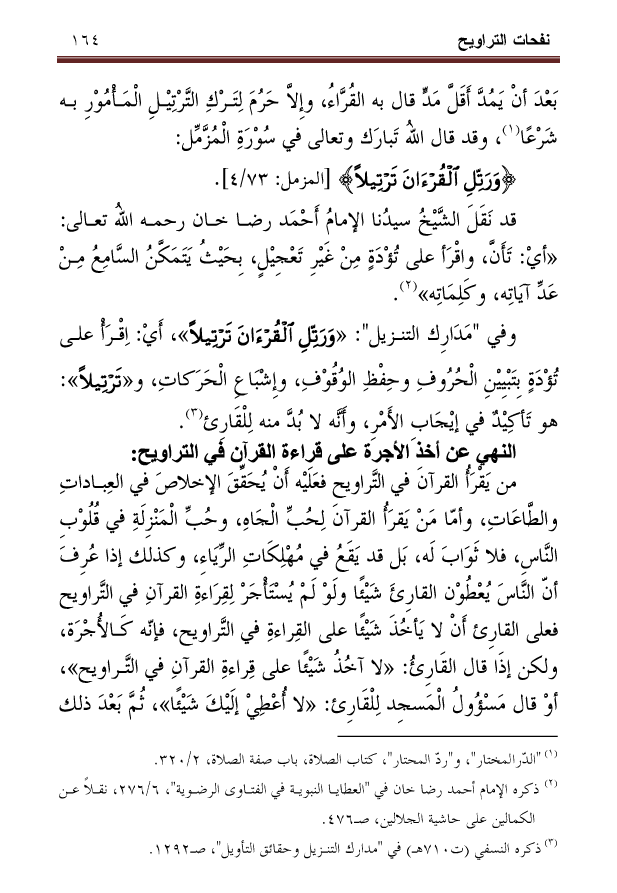 نفحات التراويح
١٦٤
بَعْدَ أنْ يَمُدَّ أقَلَّ مَدٍّ قال به القُرَّاءُ، وإلاَّ حَرُمَ لِتَـرْكِ التَّرْتِيْـلِ الْمَـأْمُوْرِ بـه
شَرْعًا(١)، وقد قال اللهُ تَبارَك وتعالى في سُوْرَةِ الْمُزَّمِّل:
﴿وَرَتِّلِ ٱلۡقُرۡءَانَ تَرۡتِيلاً﴾ [المزمل: ٤/٧٣].
قد نَقَلَ الشَّيْخُ سيدُنا الإمامُ أَحْمَد رضـا خـان رحمـه اللهُ تعـالى:
«أيْ: تَأَنَّ، واقْرَأ على تُؤْدَةٍ مِنْ غَيْرِ تَعْجِيْلٍ، بِحَيْثُ يَتَمَكَّنُ السَّامِعُ مِـنْ
عَدِّ آيَاتِه، وكَلِمَاتِه»(٢).
وفي "مَدَارِك التنـزيل": «وَرَتِّلِ ٱلۡقُرۡءَانَ تَرۡتِيلاً»، أَيْ: اِقْـرَأْ علـى
تُؤْدَةٍ بِتَبْيِيْنِ الْحُرُوفِ وحِفْظِ الوُقُوْفِ، وإشْبَاعِ الْحَرَكاتِ، و«تَرۡتِيلاً»:
هو تَأكِيْدٌ في إيْجابِ الأمْرِ، وأنَّه لا بُدَّ منه لِلْقَارِئ(٣).
النهي عن أخذ الأجرة على قراءة القرآن في التراويح:
من يَقْرَأُ القرآنَ في التَّراويح فعَلَيْه أنْ يُحَقِّقَ الإخلاصَ في العِبـاداتِ
والطَّاعَاتِ، وأمّا مَنْ يَقرَأُ القرآنَ لِحُبِّ الْجَاهِ، وحُبِّ الْمَنْزِلَةِ في قُلُوْبِ
النَّاسِ، فلا ثَوَابَ لَه، بل قد يَقَعُ في مُهْلِكَاتِ الرِّيَاءِ، وكذلك إذا عُرِفَ
أنّ النَّاسَ يُعْطُوْن القارِئَ شَيْئًا ولَوْ لَمْ يُسْتَأْجَرْ لِقِرَاءَةِ القرآنِ في التَّراويح
فعلى القارِئِ أنْ لا يَأخُذَ شَيْئًا على القِراءةِ في التَّراويح، فإنّه كَـالأُجْرَة،
ولكن إذَا قال القَارِئُ: «لا آخُذُ شَيْئًا على قِراءةِ القرآنِ في التَّـراويح»،
أوْ قال مَسْؤُولُ الْمَسجدِ لِلْقَارِئ: «لا أُعْطِيْ إلَيْكَ شَيْئًا»، ثُمَّ بَعْدَ ذلك
(١) "الدّرالمختار"، و"ردّ المحتار"، كتاب الصلاة، باب صفة الصلاة، ٣٢٠/٢.
(٢) ذكره الإمام أحمد رضا خان في "العطايا النبويـة في الفتـاوى الرضـوية"، ٢٧٦/٦، نقـلاً عـن
الكمالين على حاشية الجلالين، صـ٤٧٦.
(٣) ذكره النسفي (ت٧١٠هـ) في "مدارك التنـزيل وحقائق التأويل"، صـ١٢٩٢.